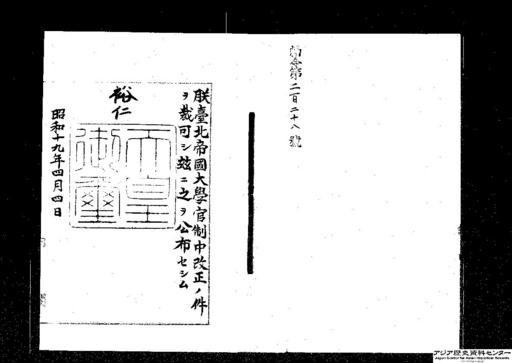 勅令第二百二十八號
朕臺北帝國大學官制中改正ノ件
ヲ裁可シ玆ニ之ヲ公布セシム
裕仁
天皇御璽
昭和十九年四月四日
アジア歴史資料センター
Japan Center for Asian Historical Records